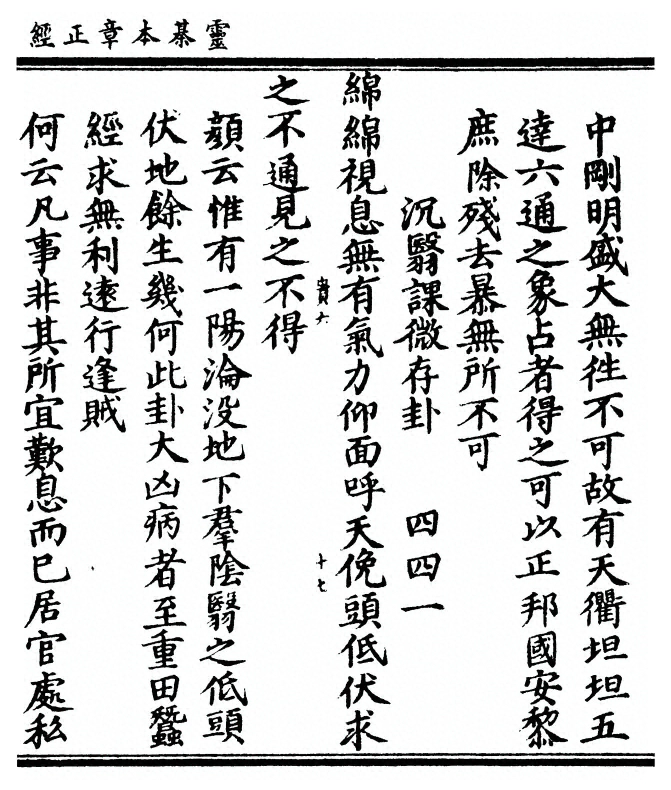 靈棊本章正經
中剛明盛大無徃不可故有天衢坦坦五
達六通之象占者得之可以正邦國安黎
庶除殘去暴無所不可
沉翳課微存卦 四四一
綿綿視息無有氣力仰面呼天俛頭低伏求
之不通見之不得
寶六
十七
顔云惟有一陽淪没地下羣陰翳之低頭
伏地餘生幾何此卦大凶病者至重田蠶
經求無利遠行逢賊
何云凡事非其所宜歎息而已居官處私